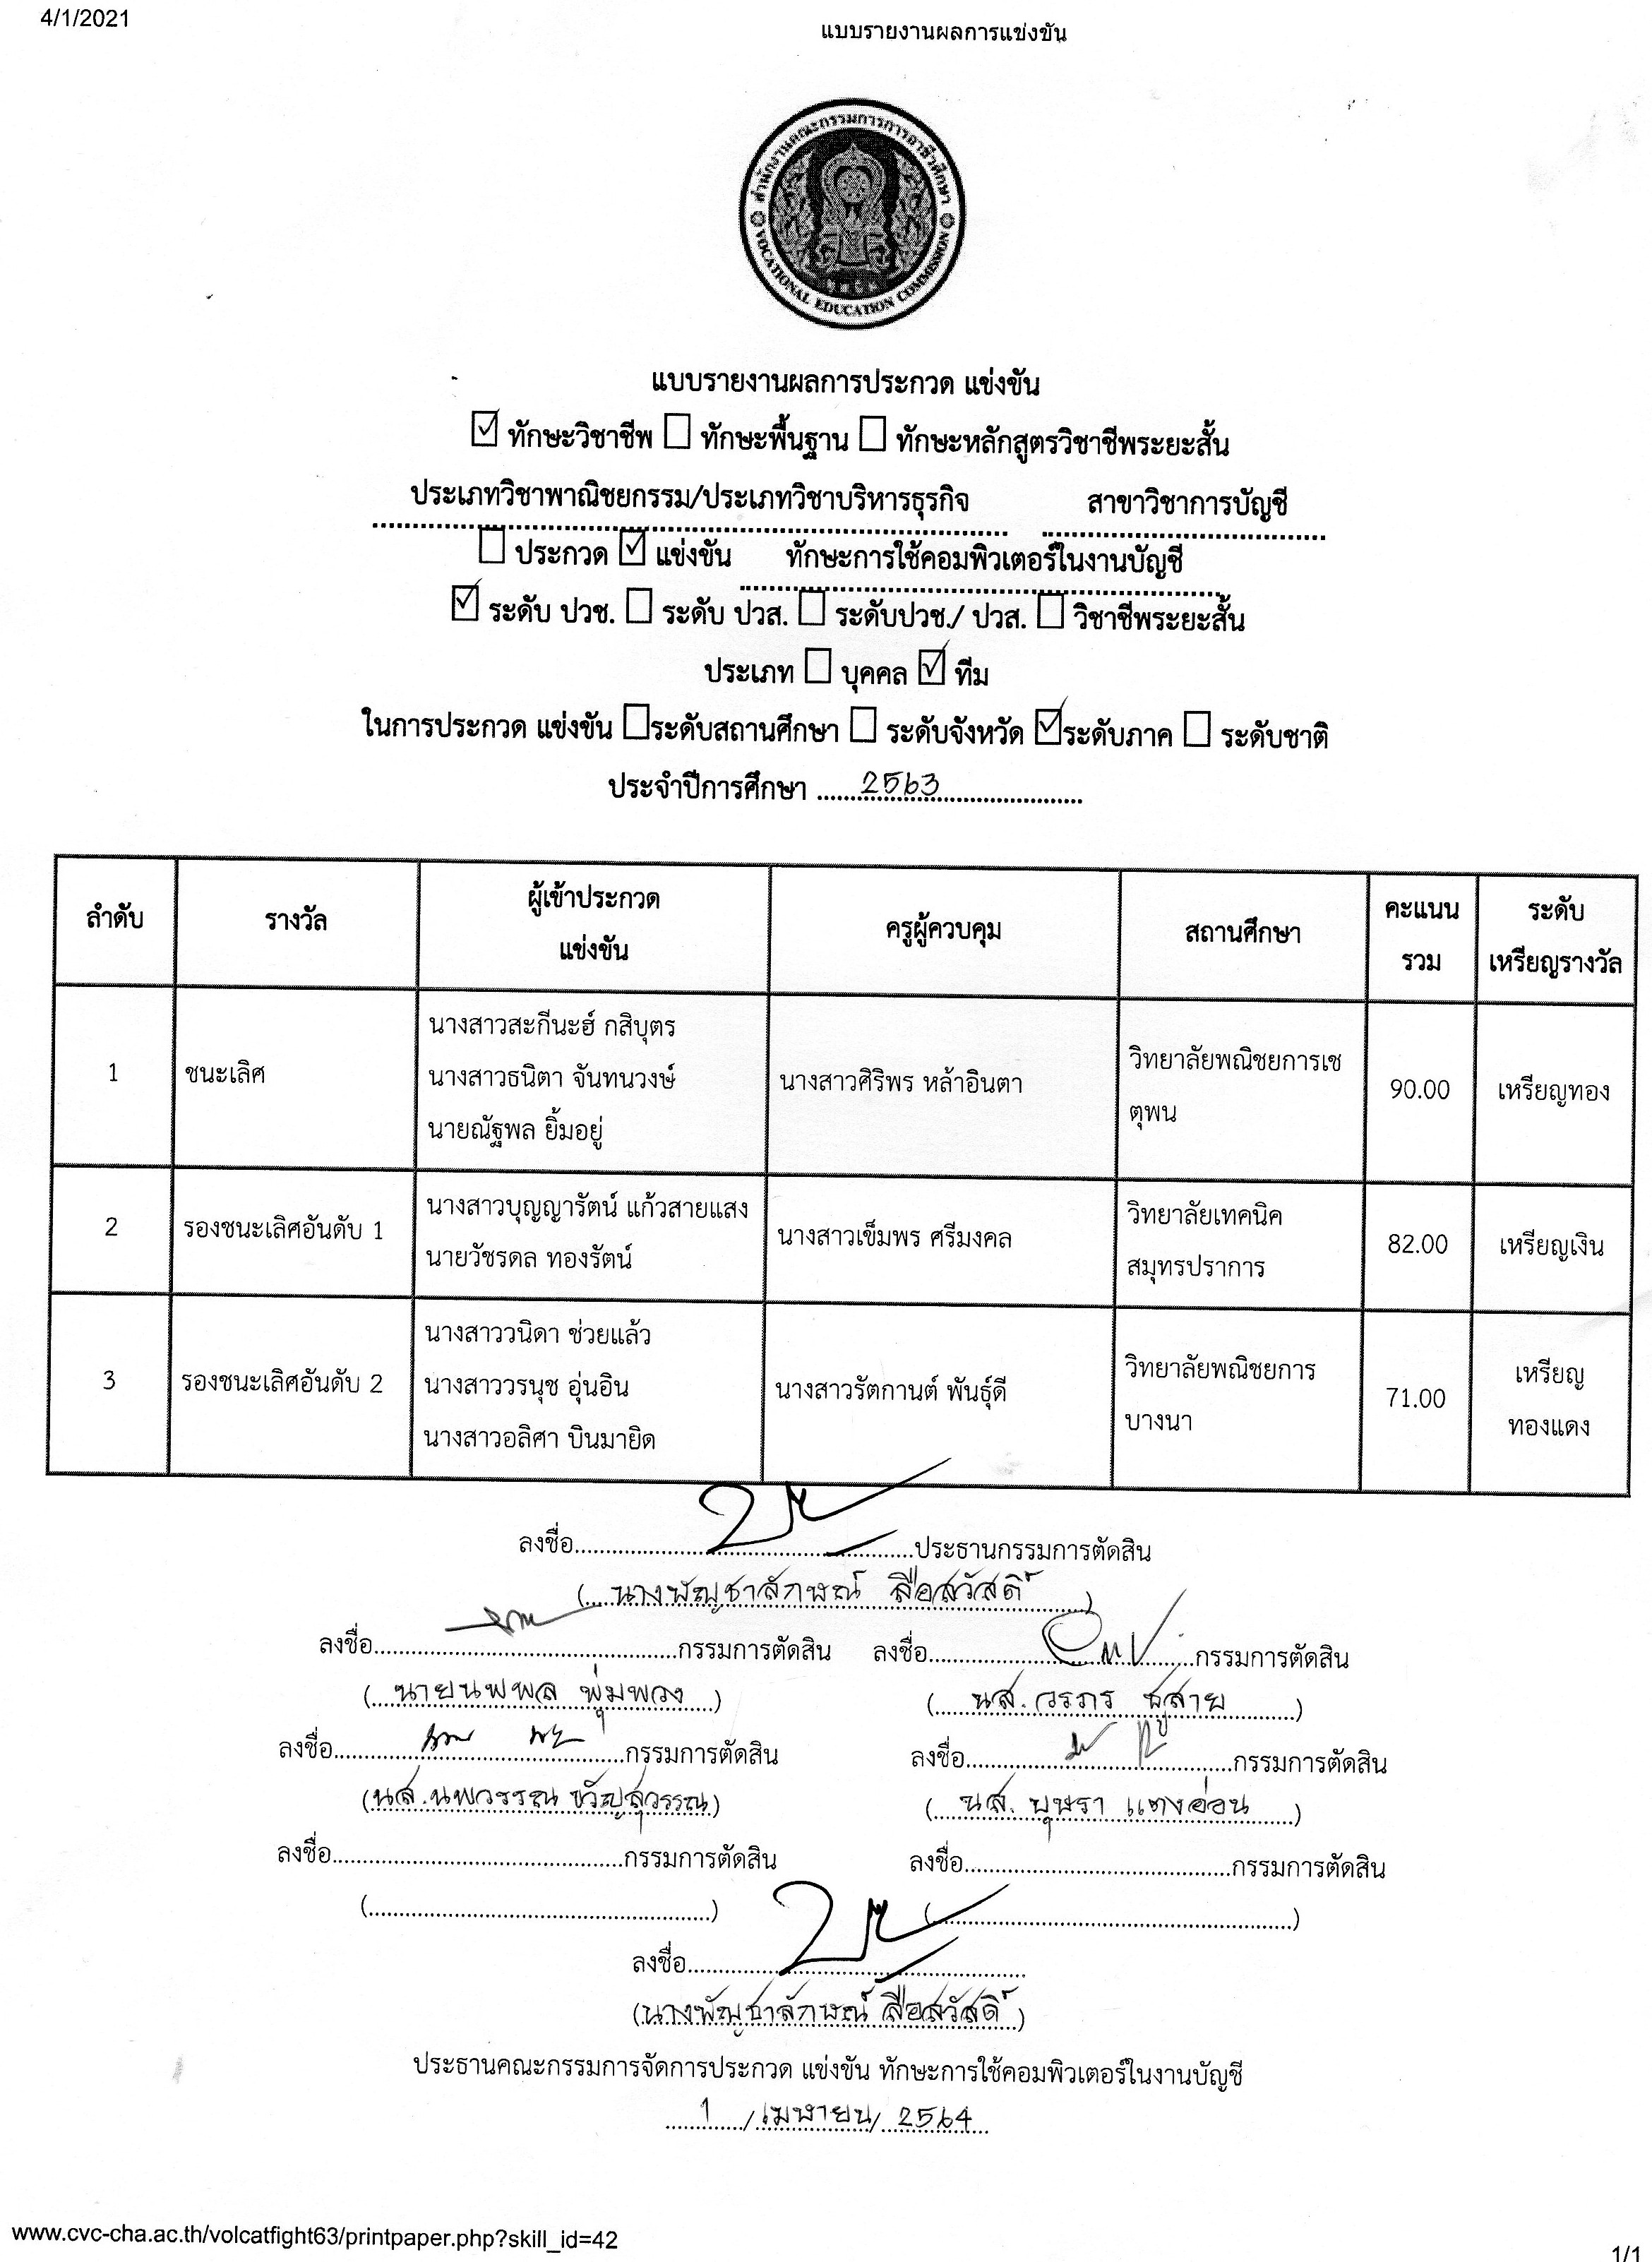 4/1/2021
แบบรายงานผลการแข่งขัน
สำนักงานคณะกรรมการการอาชีวศึกษา
VOCATIONAL EDUCATION COMMISSION
แบบรายงานผลการประกวด แข่งขัน
☑ ทักษะวิชาชีพ ☐ ทักษะพื้นฐาน ☐ ทักษะหลักสูตรวิชาชีพระยะสั้น
ประเภทวิชาพาณิชยกรรม/ประเภทวิชาบริหารธุรกิจ สาขาวิชาการบัญชี
☐ ประกวด ☑ แข่งขัน ทักษะการใช้คอมพิวเตอร์ในงานบัญชี
☑ ระดับ ปวช. ☐ ระดับ ปวส. ☐ ระดับปวช./ ปวส. ☐ วิชาชีพระยะสั้น
ประเภท ☐ บุคคล ☑ ทีม
ในการประกวด แข่งขัน ☐ระดับสถานศึกษา ☐ ระดับจังหวัด ☑ระดับภาค ☐ ระดับชาติ
ประจำปีการศึกษา ......2563......
ลำดับ รางวัล ผู้เข้าประกวด แข่งขัน ครูผู้ควบคุม สถานศึกษา คะแนน รวม ระดับ เหรียญรางวัล
1 ชนะเลิศ
นางสาวสะกีนะฮ์ กสิบุตร
นางสาวธนิตา จันทนวงษ์
นายณัฐพล ยิ้มอยู่
นางสาวศิริพร หล้าอินตา
วิทยาลัยพณิชยการเช
ตุพน
90.00
เหรียญทอง
2 รองชนะเลิศอันดับ 1
นางสาวบุญญารัตน์ แก้วสายแสง
นายวัชรดล ทองรัตน์
นางสาวเข็มพร ศรีมงคล
วิทยาลัยเทคนิค
สมุทรปราการ
82.00
เหรียญเงิน
3 รองชนะเลิศอันดับ 2
นางสาววนิดา ช่วยแล้ว
นางสาววรนุช อุ่นอิน
นางสาวอลิศา บินมายิด
นางสาวรัตกานต์ พันธุ์ดี
วิทยาลัยพณิชยการ
บางนา
71.00
เหรียญ
ทองแดง
ลงชื่อ............ประธานกรรมการตัดสิน
(นางพัญชาลักษณ์ ลือสวัสดิ์)
ลงชื่อ............กรรมการตัดสิน ลงชื่อ............กรรมการตัดสิน
(นายนพพล พุ่มพวง) (นส.วรภร ชูสาย)
ลงชื่อ............กรรมการตัดสิน ลงชื่อ............กรรมการตัดสิน
(นส.นพวรรณ ขวัญสุวรรณ) (นส. บุษรา แตงอ่อน)
ลงชื่อ............กรรมการตัดสิน ลงชื่อ............กรรมการตัดสิน
(............) (............)
ลงชื่อ............
(นางพัญชาลักษณ์ ลือสวัสดิ์)
ประธานคณะกรรมการจัดการประกวด แข่งขัน ทักษะการใช้คอมพิวเตอร์ในงานบัญชี
1 /เมษายน/ 2564
www.cvc-cha.ac.th/volcatfight63/printpaper.php?skill_id=42
1/1